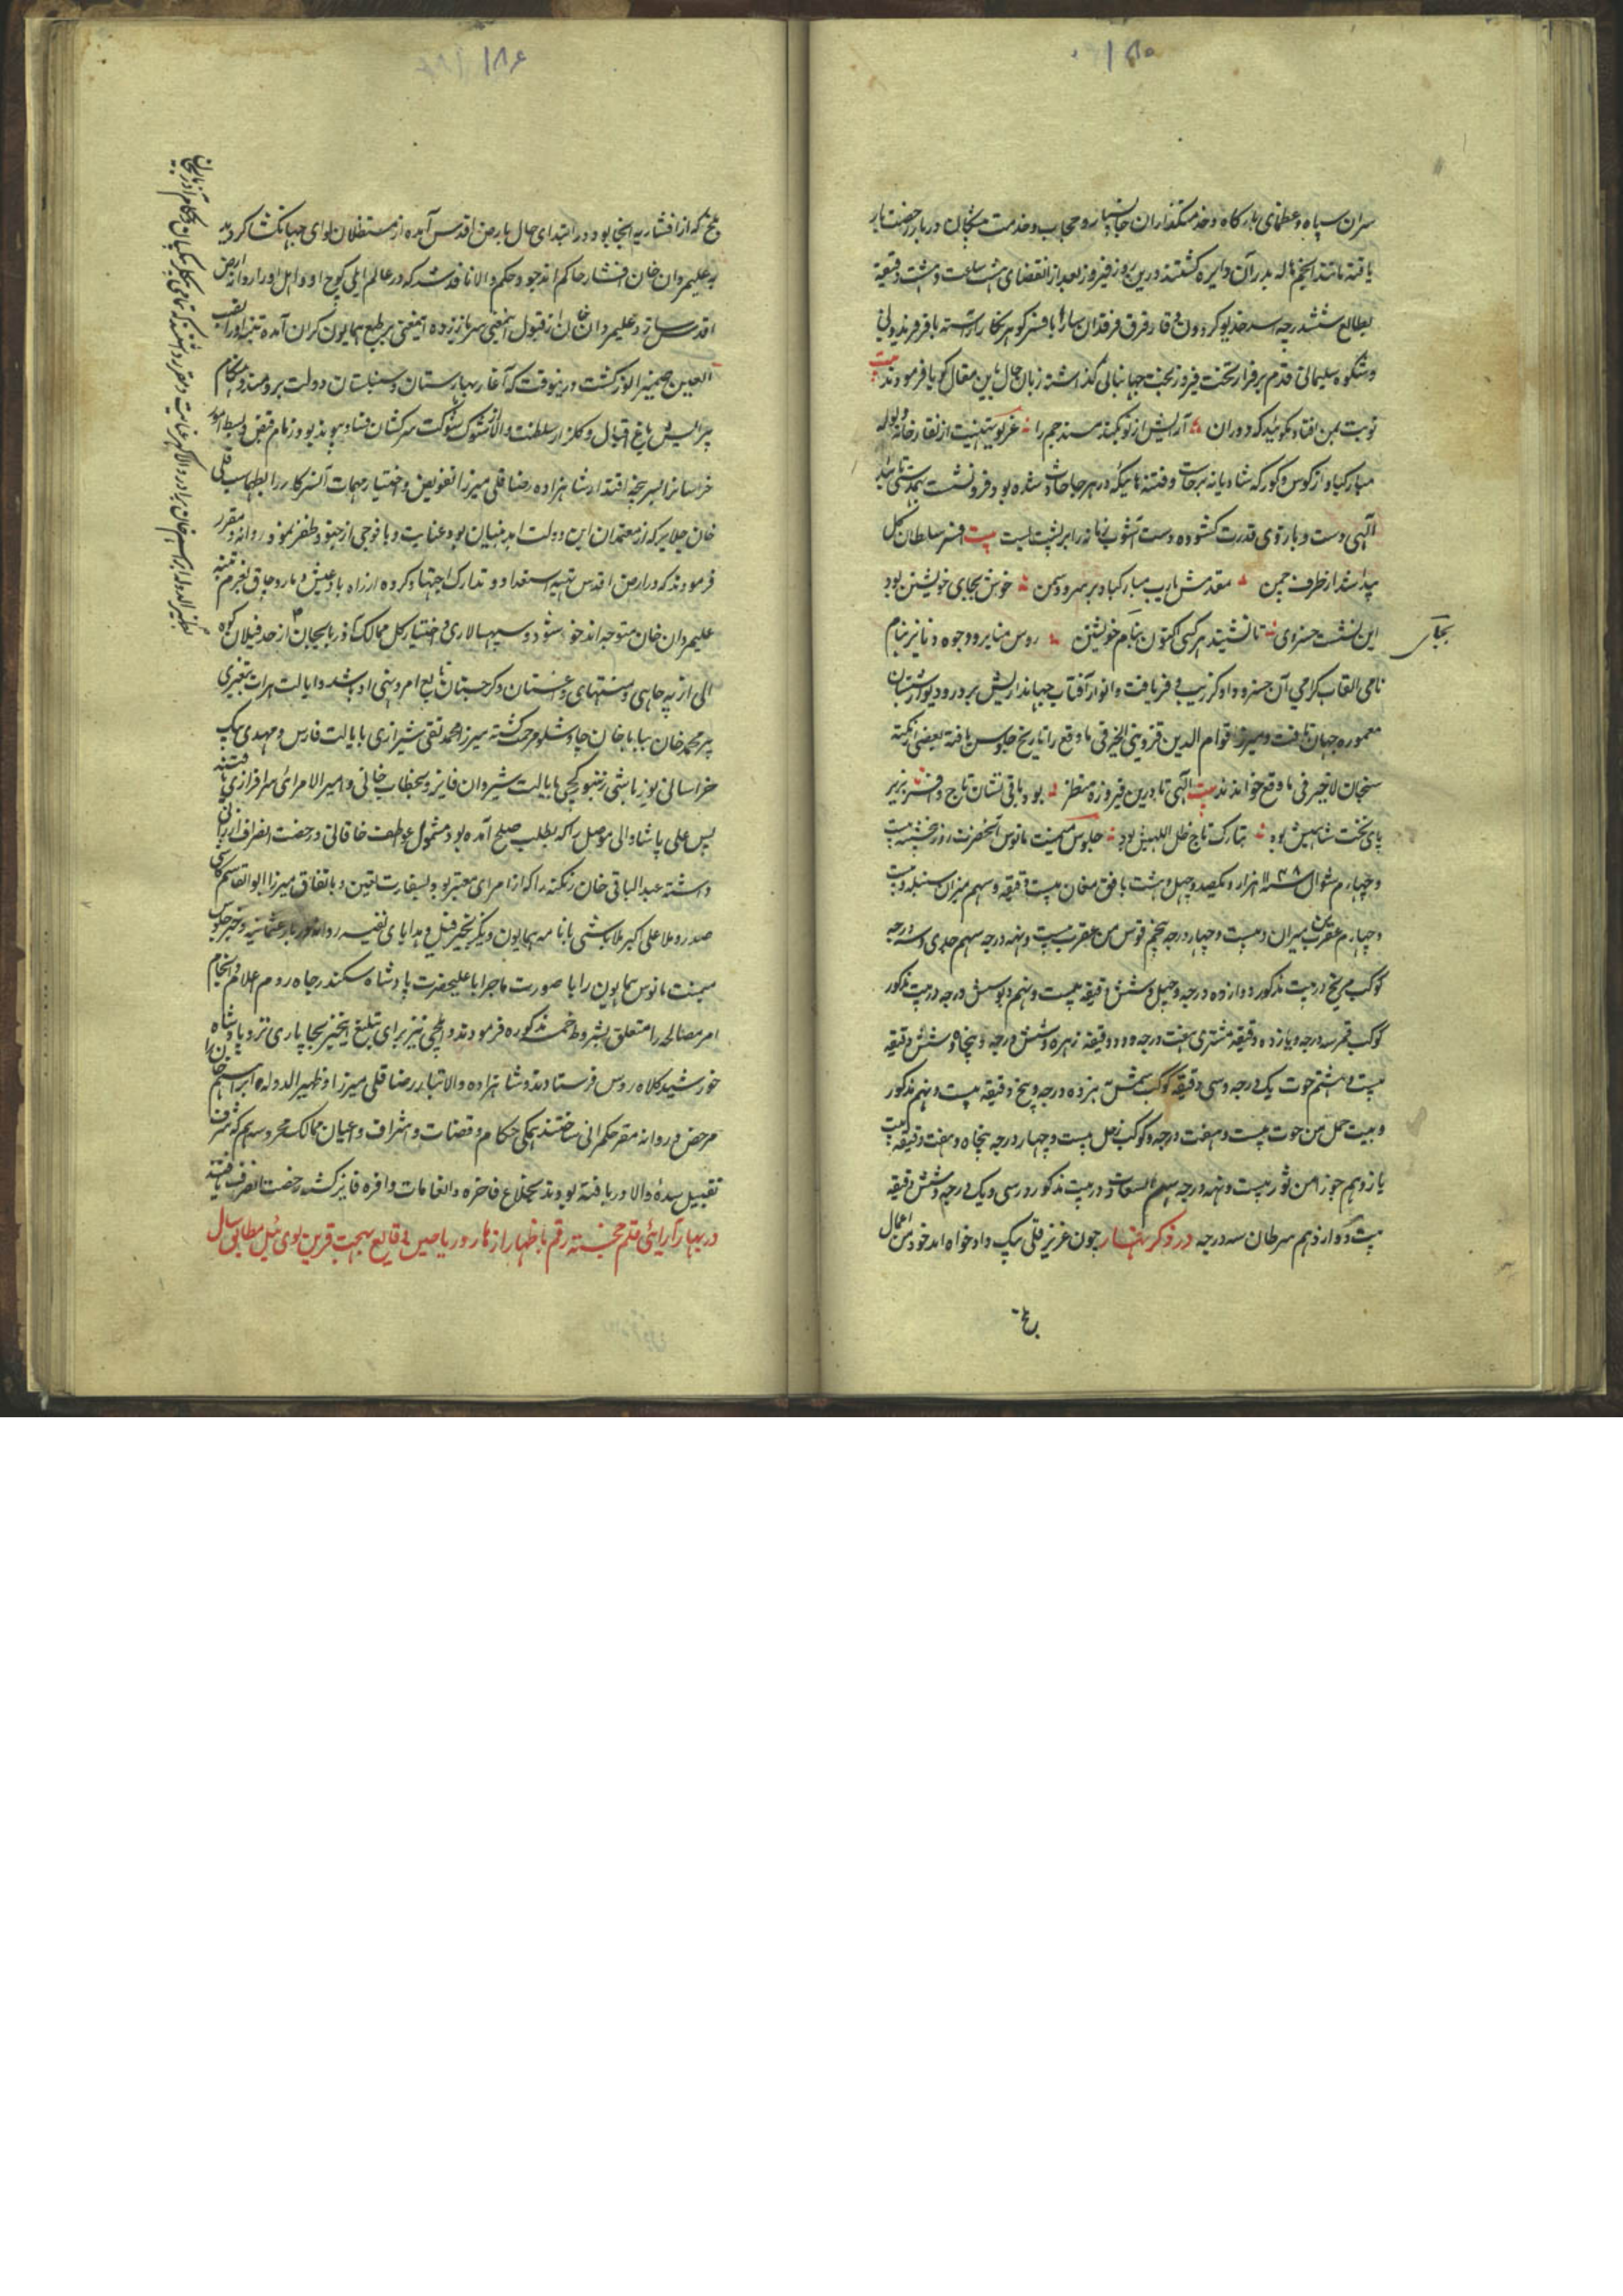 ۱۸۵
سران سپاه و عظمای بارگاه و خدمتگذاران جانسپار و حجاب و خدمت پیشگان دربار رخصت بار
یافته مانند انجم هاله بدر آن دایره گشتند درین روز فیروز بعد از انقضای هشت ساعت و هشت دقیقه
بطالع شش درجه اسد خدیو گردون وقار فرق فرقدان سا را بافسر گوهر نگار آراسته با فر فریدونی
و شکوه سلیمانی قدم بر فراز تخت فیروز بخت جهانبانی گذاشته زبان حال باین مقال گویا فرمودند بیت
نوبت بمن افتاد بگوئید که دوران آرایش از نو بکند مسند جم را غریو تهنیت از نقارخانه و لوله
مبارکباد از کوس و کورکه شادیانه برخاست و فتنه هائیکه در هر جا حادث شده بود فرو نشست بدستی تائید
الهی دست و بازوی قدرت گشوده دست آشوب زمانه را بر پشت بست بیت افسر سلطان گل
پیدا شد از طرف چمن مقدمش یارب مبارکباد بر سرو و سمن خوش بجای خویشتن بود
این نشست خسروی تا نشیند هر کسی اکنون بنام خویشتن روس منابر و وجوه دنانیر بنام
بجای
نامی القاب گرامی آن خسرو داوگر زیب و فر یافت و انوار آفتاب جهاندارایش بر در و دیوار شبستان
معموره جهان تافت و میرزا قوام الدین قزوینی الخیر فی ما وقع را تاریخ جلوس یافته بعضی از نکته
سنجان لاخیر فی ما وقع خواندند بیت الهی تا درین فیروزه منظر بود باقی نشان تاج و افسر سریر
پای تخت شاهیش بود تبارک تاج ظل اللهیش بود جلوس میمنت مانوس آنحضرت روز پنجشنبه بیست
و چهارم شوال ۱۱۴۸ هزار و یکصد و چهل و هشت بافق مغان بیست دقیقه و سهم میزان سنبله و بیت
و چهارم عقرب من میزان و بیست و چهار درجه پنجم قوس من عقرب بیست و نهم درجه سهم جدی و سه درجه
کوکب مریخ در بیت مذکور دوازده درجه و چهل و شش دقیقه بیست و نهم دلو شش درجه در بیت مذکور
کوکب قمر سه درجه و یازده دقیقه مشتری هفت درجه و دو دقیقه زهره و شش درجه و پنجاه و شش دقیقه
بیت هشتم حوت یک درجه و سی دقیقه کوکب شمس نوزده درجه و پنج دقیقه بیت نهم مذکور
و بیت حمل من حوت بیست و هفت درجه و کوکب زحل بیست و چهار درجه پنجاه و هفت دقیقه بیت
یازدهم جوزا من ثور بیست و نهم درجه سهم السعادت در بیت مذکور و سی و یک درجه و شش دقیقه
بیت دوازدهم سرطان سه درجه در ذکر بهار چون عزیز قلی بیک دادخواه اندخود من اعمال
بلخ
۱۸۶
بلخ که از افشاریه آنجا بود در ابتدای حال بارض اقدس آمده از مستظلان لوای جهانگشا گردید
بعلیمردان خان افشار حاکم اندخود حکم والا نافذ شد که در عالم ایلی کوچ او و اهل او را روانه ارض
اقدس سازد علیمردان خان از قبول آنمعنی سر باز زده آنمعنی بر طبع همایون گران آمده تنبیه او را نصب
العین ضمیر انور گشت درینوقت که آغاز بهارستان و سنبلستان دولت برومند و هنگام
پیرایش باغ اقبال و گلزار سلطنت والا از شوک شوکت سرکشان فساد پیوند بود زمام قبض و بسط امور
خراسانرا بسر پنجه اقتدار شاهزاده رضا قلی میرزا تفویض و اختیار مهمات آنسرکار را بطهماسب قلی
خان جلایر که از معتمدان این دولت ابد بنیان بود عنایت و با فوجی از جنود ظفر نمود روانه و مقرر
فرمودند که در ارض اقدس تهیه استعداد و تدارک اجتهاد کرده از راه بادغیش و ماروچاق بعزم تنبیه
علیمردان خان متوجه اندخود شود و سپهسالاری و اختیار کل ممالک آذربایجان از حد قپلان کوه
الی ارپه چاهی و منتهای داغستان و گرجستان تابع امر و نهی او باشد و ایالت هرات بتغییری
پیر محمد خان بباباخان چاوشلو مرحمت گشته میرزا محمد تقی شیرازی بایالت فارس و مهدی بیک
خراسانی یوزباشی زنبورکچی بایالت شیروان فایز و بخطاب خانی و امیرالامرائی سرافرازی یافتند
پس علی پاشا والی موصل را که بطلب صلح آمده بود مشمول عواطف خاقانی و رخصت انصراف ارزانی
داشته عبدالباقی خان زنگنه را که از امرای معتبر بود بسفارت تعیین و باتفاق میرزا ابوالقاسم کاشی
صدر و ملا علی اکبر ملاباشی با نامه همایون و یک زنجیر فیل و هدایای نفیسه روانه دربار عثمانیه و خبر جلوس
میمنت مانوس همایون را با صورت ماجرا باعلیحضرت پادشاه سکندر جاه روم اعلام و انجام
امر مصالحه را متعلق بشروط خمسه مذکوره فرمودند و ایلچی نیز برای تبلیغ اینخبر بجاپاری نزد پادشاه
خورشید کلاه روس فرستادند و شاهزاده والاتبار رضا قلی میرزا و ظهیرالدوله ابراهیم خان را
مرخص و روانه مقر حکمرانی ساختند همگی حکام و قضات و اشراف و اعیان ممالک محروسه هم که شرف
تقبیل سده والا دریافته بودند بخلاع فاخره و انعامات وافره فایز گشته رخصت انصراف یافتند
در بهار آرائی قلم خجسته رقم باظهار ازهار و ریاحین وقایع بهجت قرین لوی ئیل مطابق سال
بظهیرالدوله ابراهیم خان برادر والاگهر عنایت و مقرر داشتند که تمامی بیگلربیگیان و حکام آذربایجان